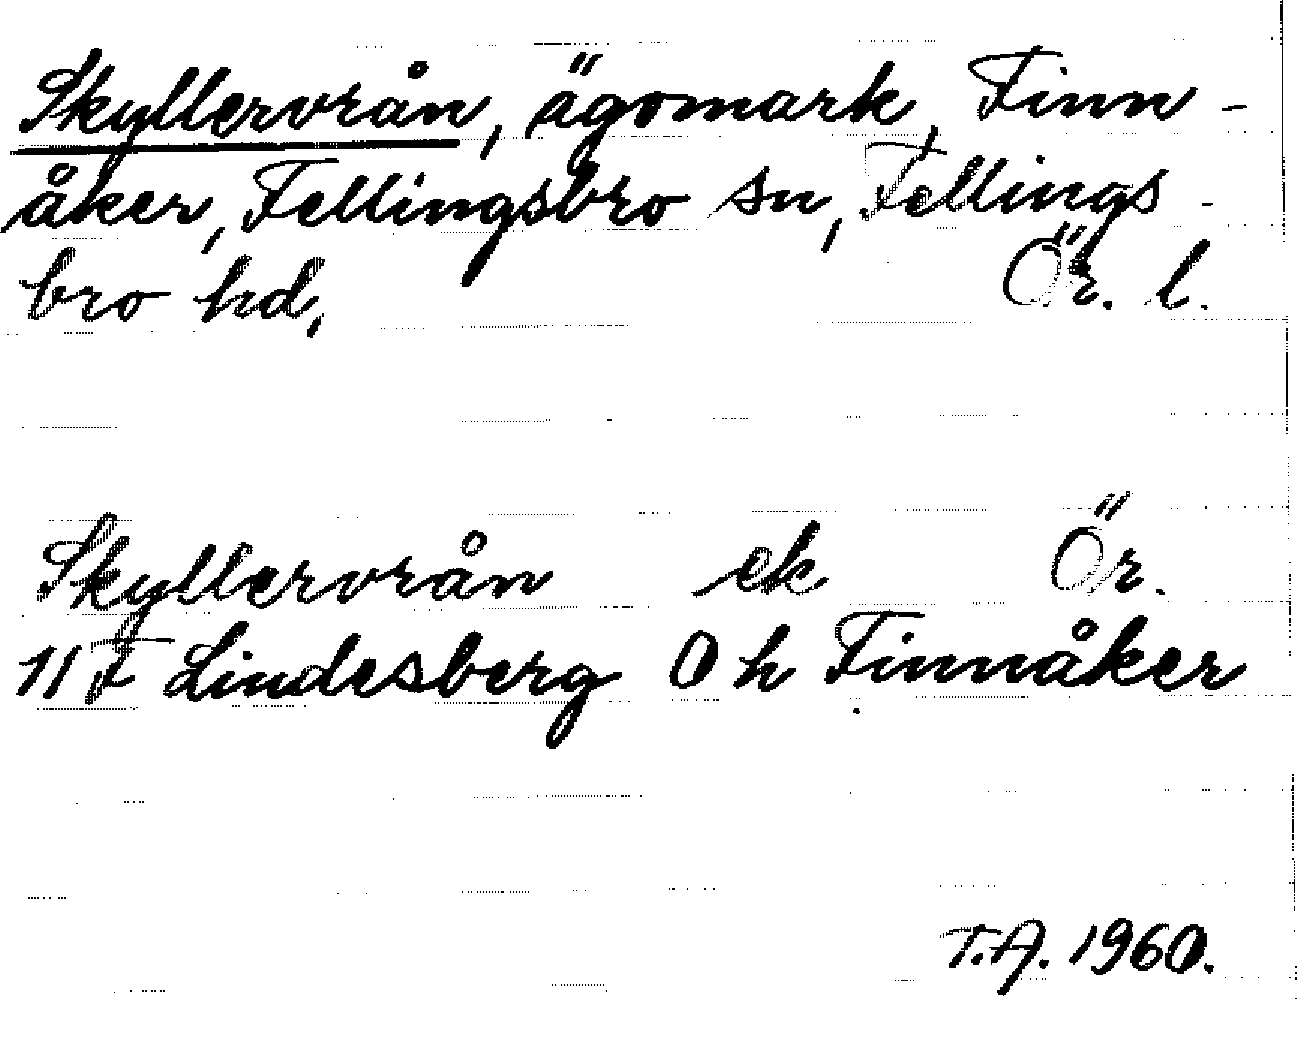 Skyllervrån, ägomark, Finn-
åker, Fellingsbro sn, Fellings-
bro hd, Ör. l.
Skyllervrån ek Ör.
11 F Lindesberg 0 h Finnåker
T.A. 1960.